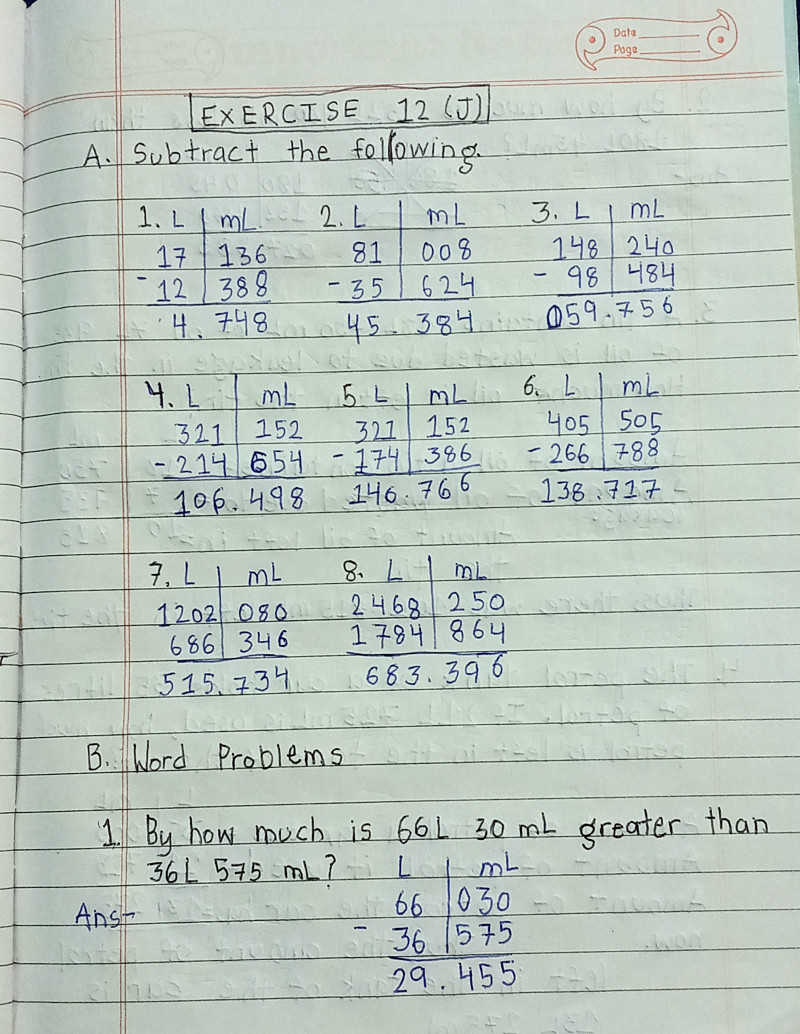 Date
Page
EXERCISE 12 (J)
A. Subtract the following.
1. L | mL 2. L | mL 3. L | mL
17 | 136 81 | 008 148 | 240
- 12 | 388 - 35 | 624 - 98 | 484
4.748 45.384 059.756
4. L | mL 5. L | mL 6. L | mL
321 | 152 321 | 152 405 | 505
- 214 | 654 - 174 | 386 - 266 | 788
106.498 146.766 138.717
7. L | mL 8. L | mL
1202 | 080 2468 | 250
686 | 346 1784 | 864
515.734 683.396
B. Word Problems
1. By how much is 66L 30 mL greater than
36L 575 mL? L | mL
Ans- 66 | 030
- 36 | 575
29.455